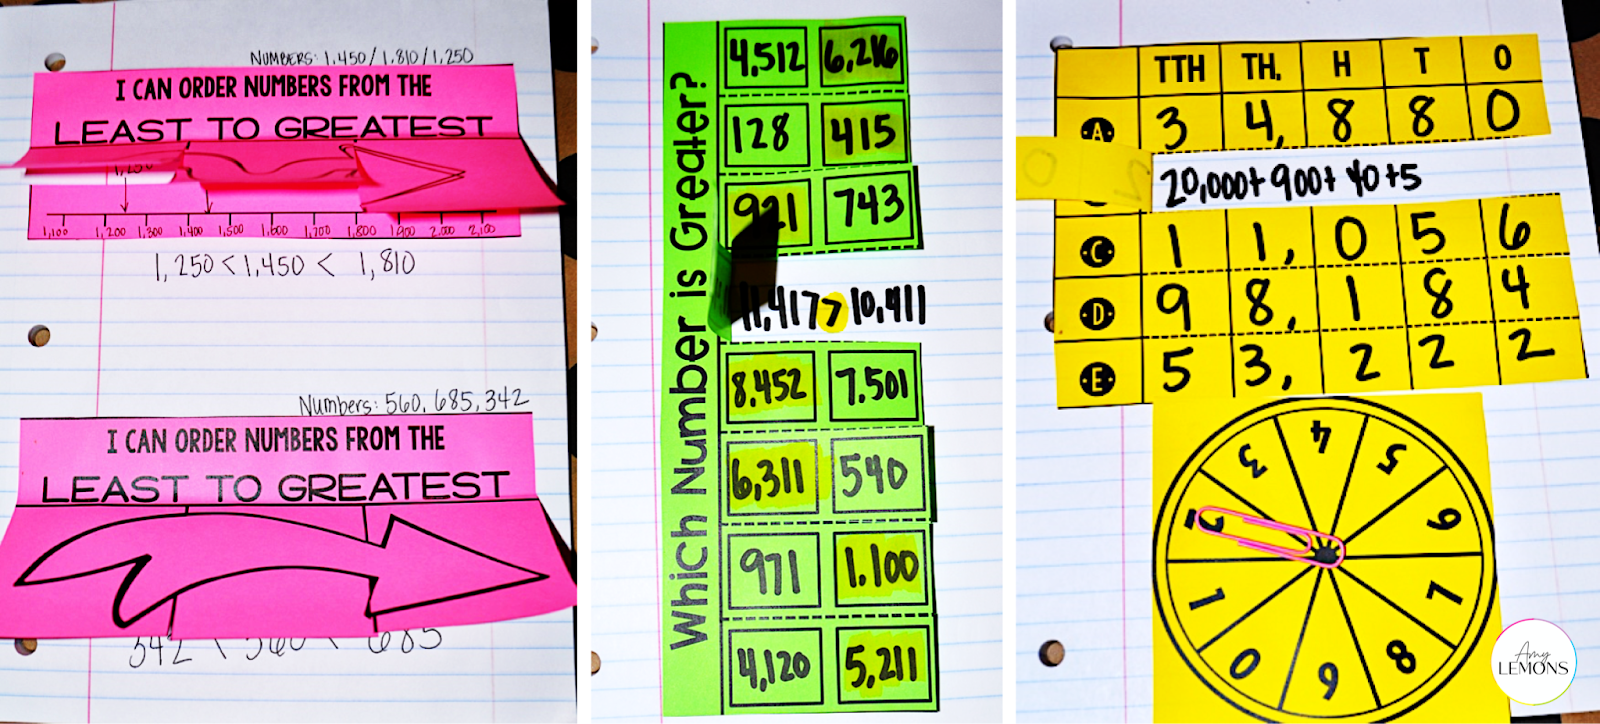 NUMBERS: 1,450 / 1,810 / 1,250
I CAN ORDER NUMBERS FROM THE
LEAST TO GREATEST
1,250
1,100 1,200 1,300 1,400 1,500 1,600 1,700 1,800 1,900 2,000 2,100
1,250 < 1,450 < 1,810
Numbers: 560, 685, 342
I CAN ORDER NUMBERS FROM THE
LEAST TO GREATEST
342 < 560 < 685
Which Number is Greater?
4,512 6,216
128 415
921 743
11,417 > 10,411
8,452 7,501
6,311 540
971 1,100
4,120 5,211
TTH TH. H T O
A 3 4, 8 8 0
20,000 + 900 + 40 + 5
C 1 1, 0 5 6
D 9 8, 1 8 4
E 5 3, 2 2 2
0 1 2 3 4 5 6 7 8 9
Amy
LEMONS